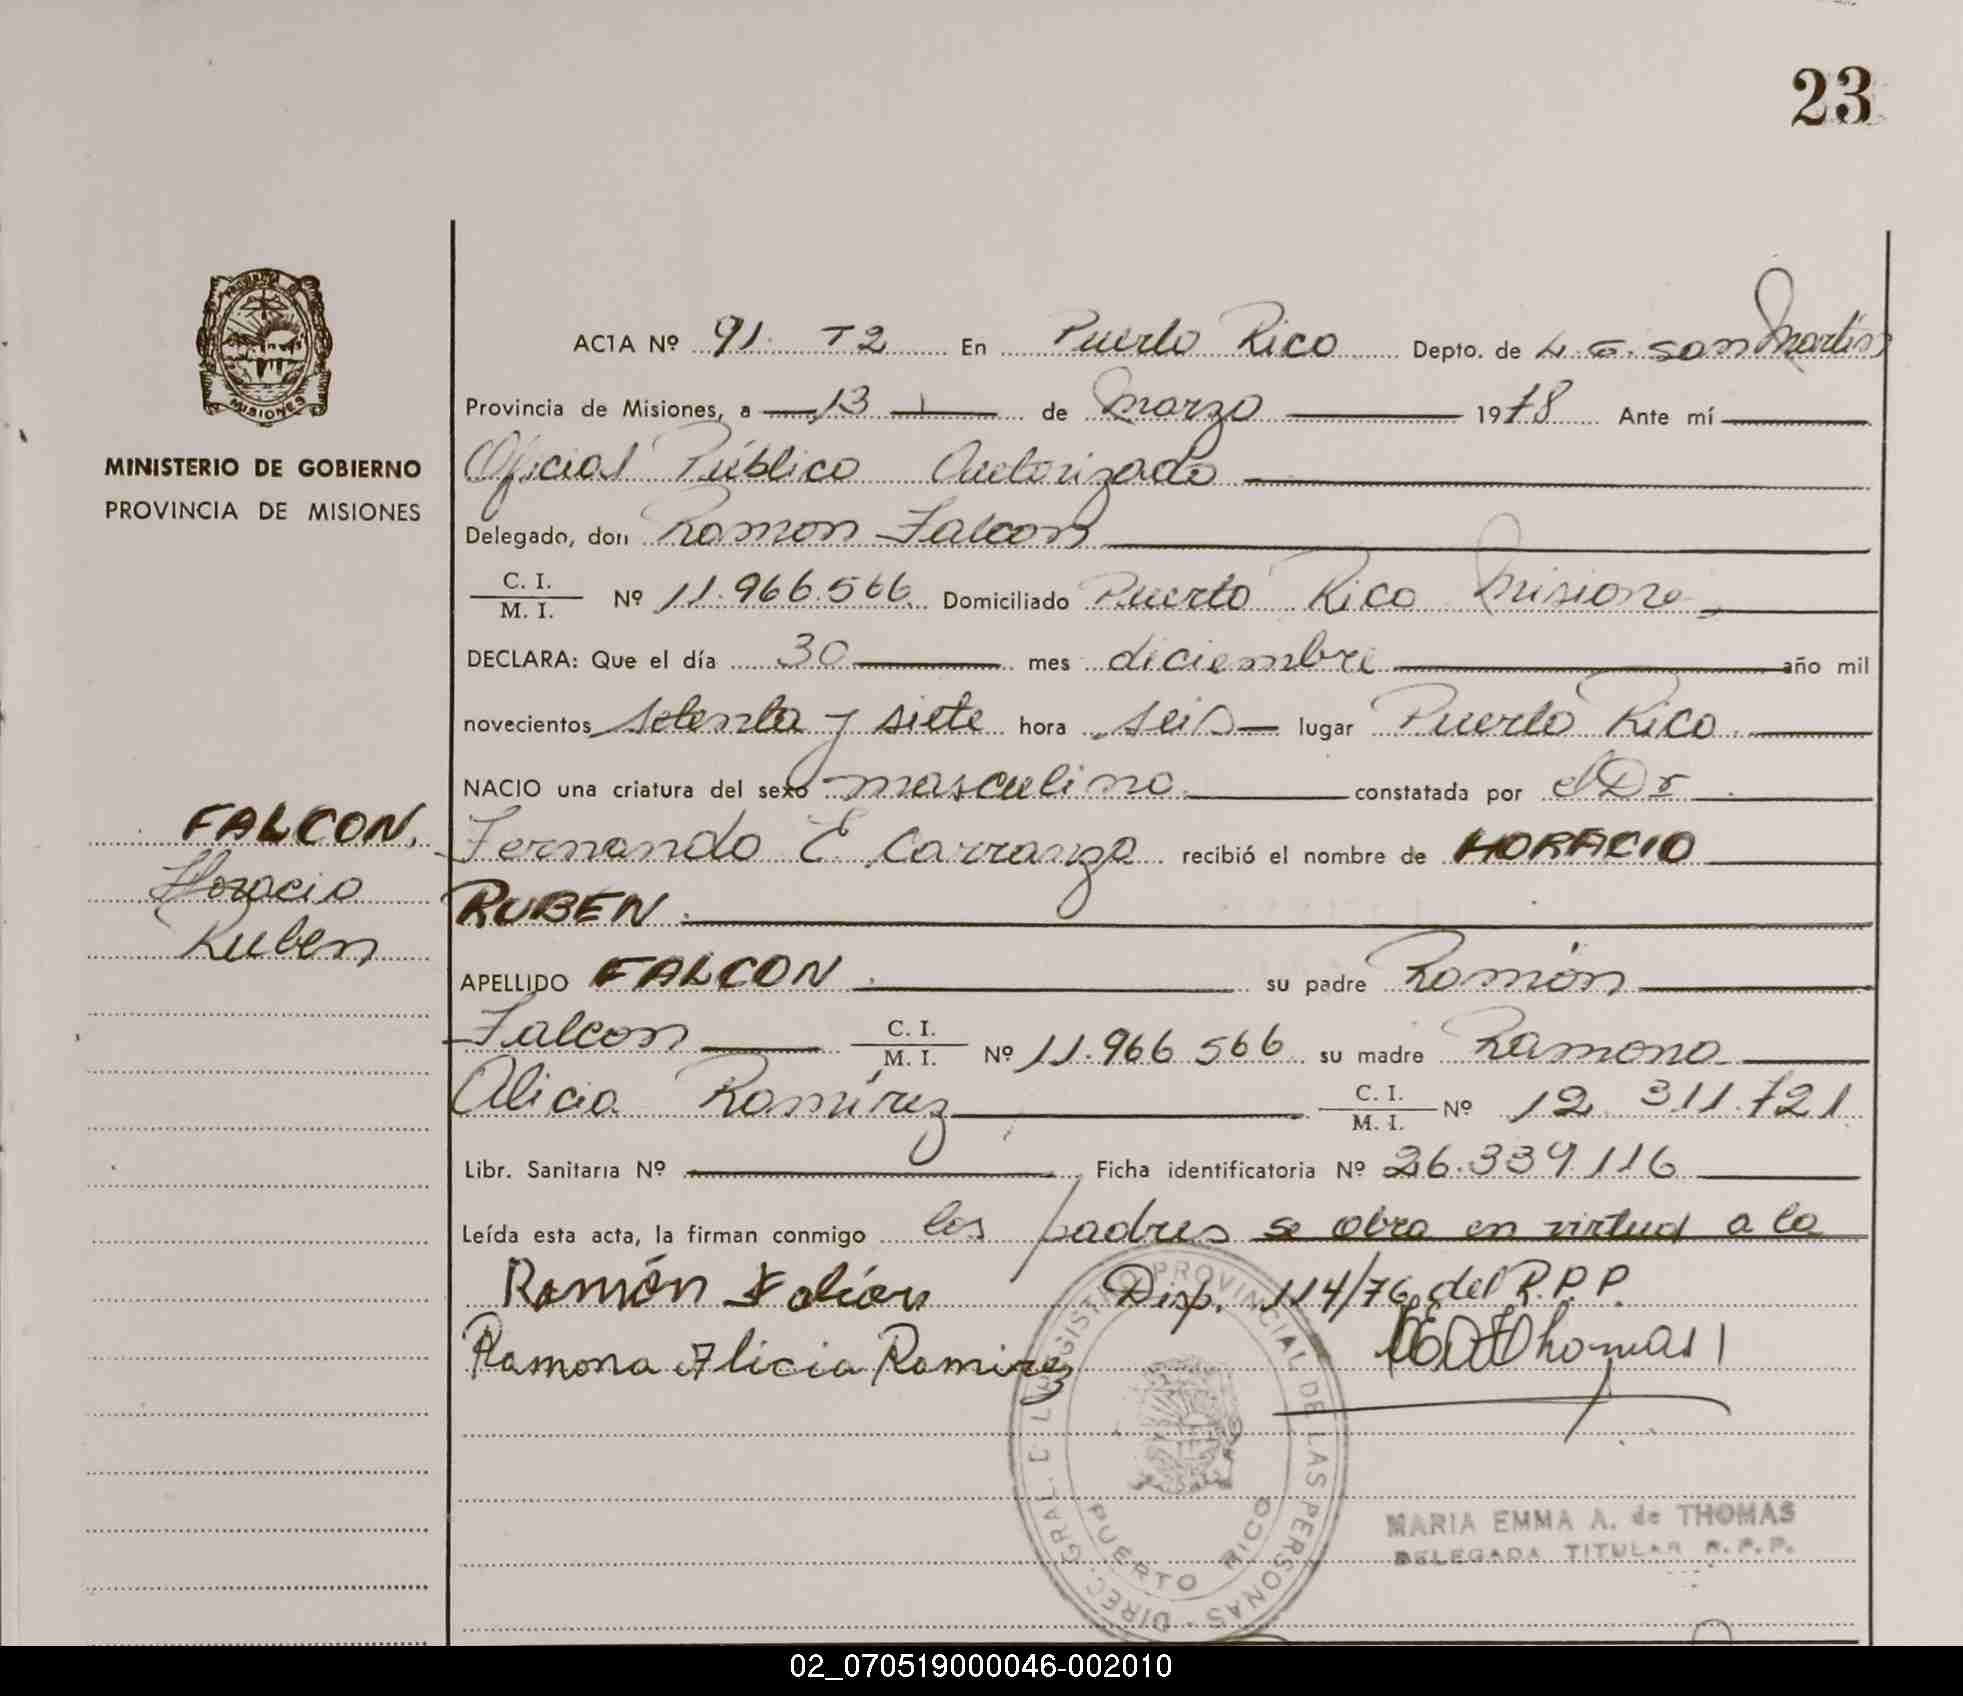 23
ACTA Nº 91. T2 En Puerto Rico Depto. de L. G. San Martín
Provincia de Misiones, a 13 de Marzo 1978 Ante mí
Oficial Público Autorizado
Delegado, don Ramon Falcon
C. I.
M. I. Nº 11.966.566 Domiciliado Puerto Rico Misiones
DECLARA: Que el día 30 mes diciembre año mil
novecientos setenta y siete hora seis lugar Puerto Rico
NACIO una criatura del sexo masculino constatada por el Dr
Fernando E. Carranza recibió el nombre de HORACIO
RUBEN.
APELLIDO FALCON. su padre Ramón
Falcon C. I. M. I. Nº 11.966 566 su madre Ramona
Alicia Ramírez C. I. M. I. Nº 12 311.721
Libr. Sanitaria Nº Ficha identificatoria Nº 26.339.116
Leída esta acta, la firman conmigo los padres se obra en virtud a la
Ramón Falcón Disp. 114/76 del R.P.P.
Ramona Alicia Ramirez Thomas
MINISTERIO DE GOBIERNO
PROVINCIA DE MISIONES
MISIONES
FALCON.
Horacio
Ruben
DIREC. GRAL. DEL REGISTRO PROVINCIAL DE LAS PERSONAS
PUERTO RICO
MARIA EMMA A. de THOMAS
DELEGADA TITULAR R.P.P.
02_070519000046-002010